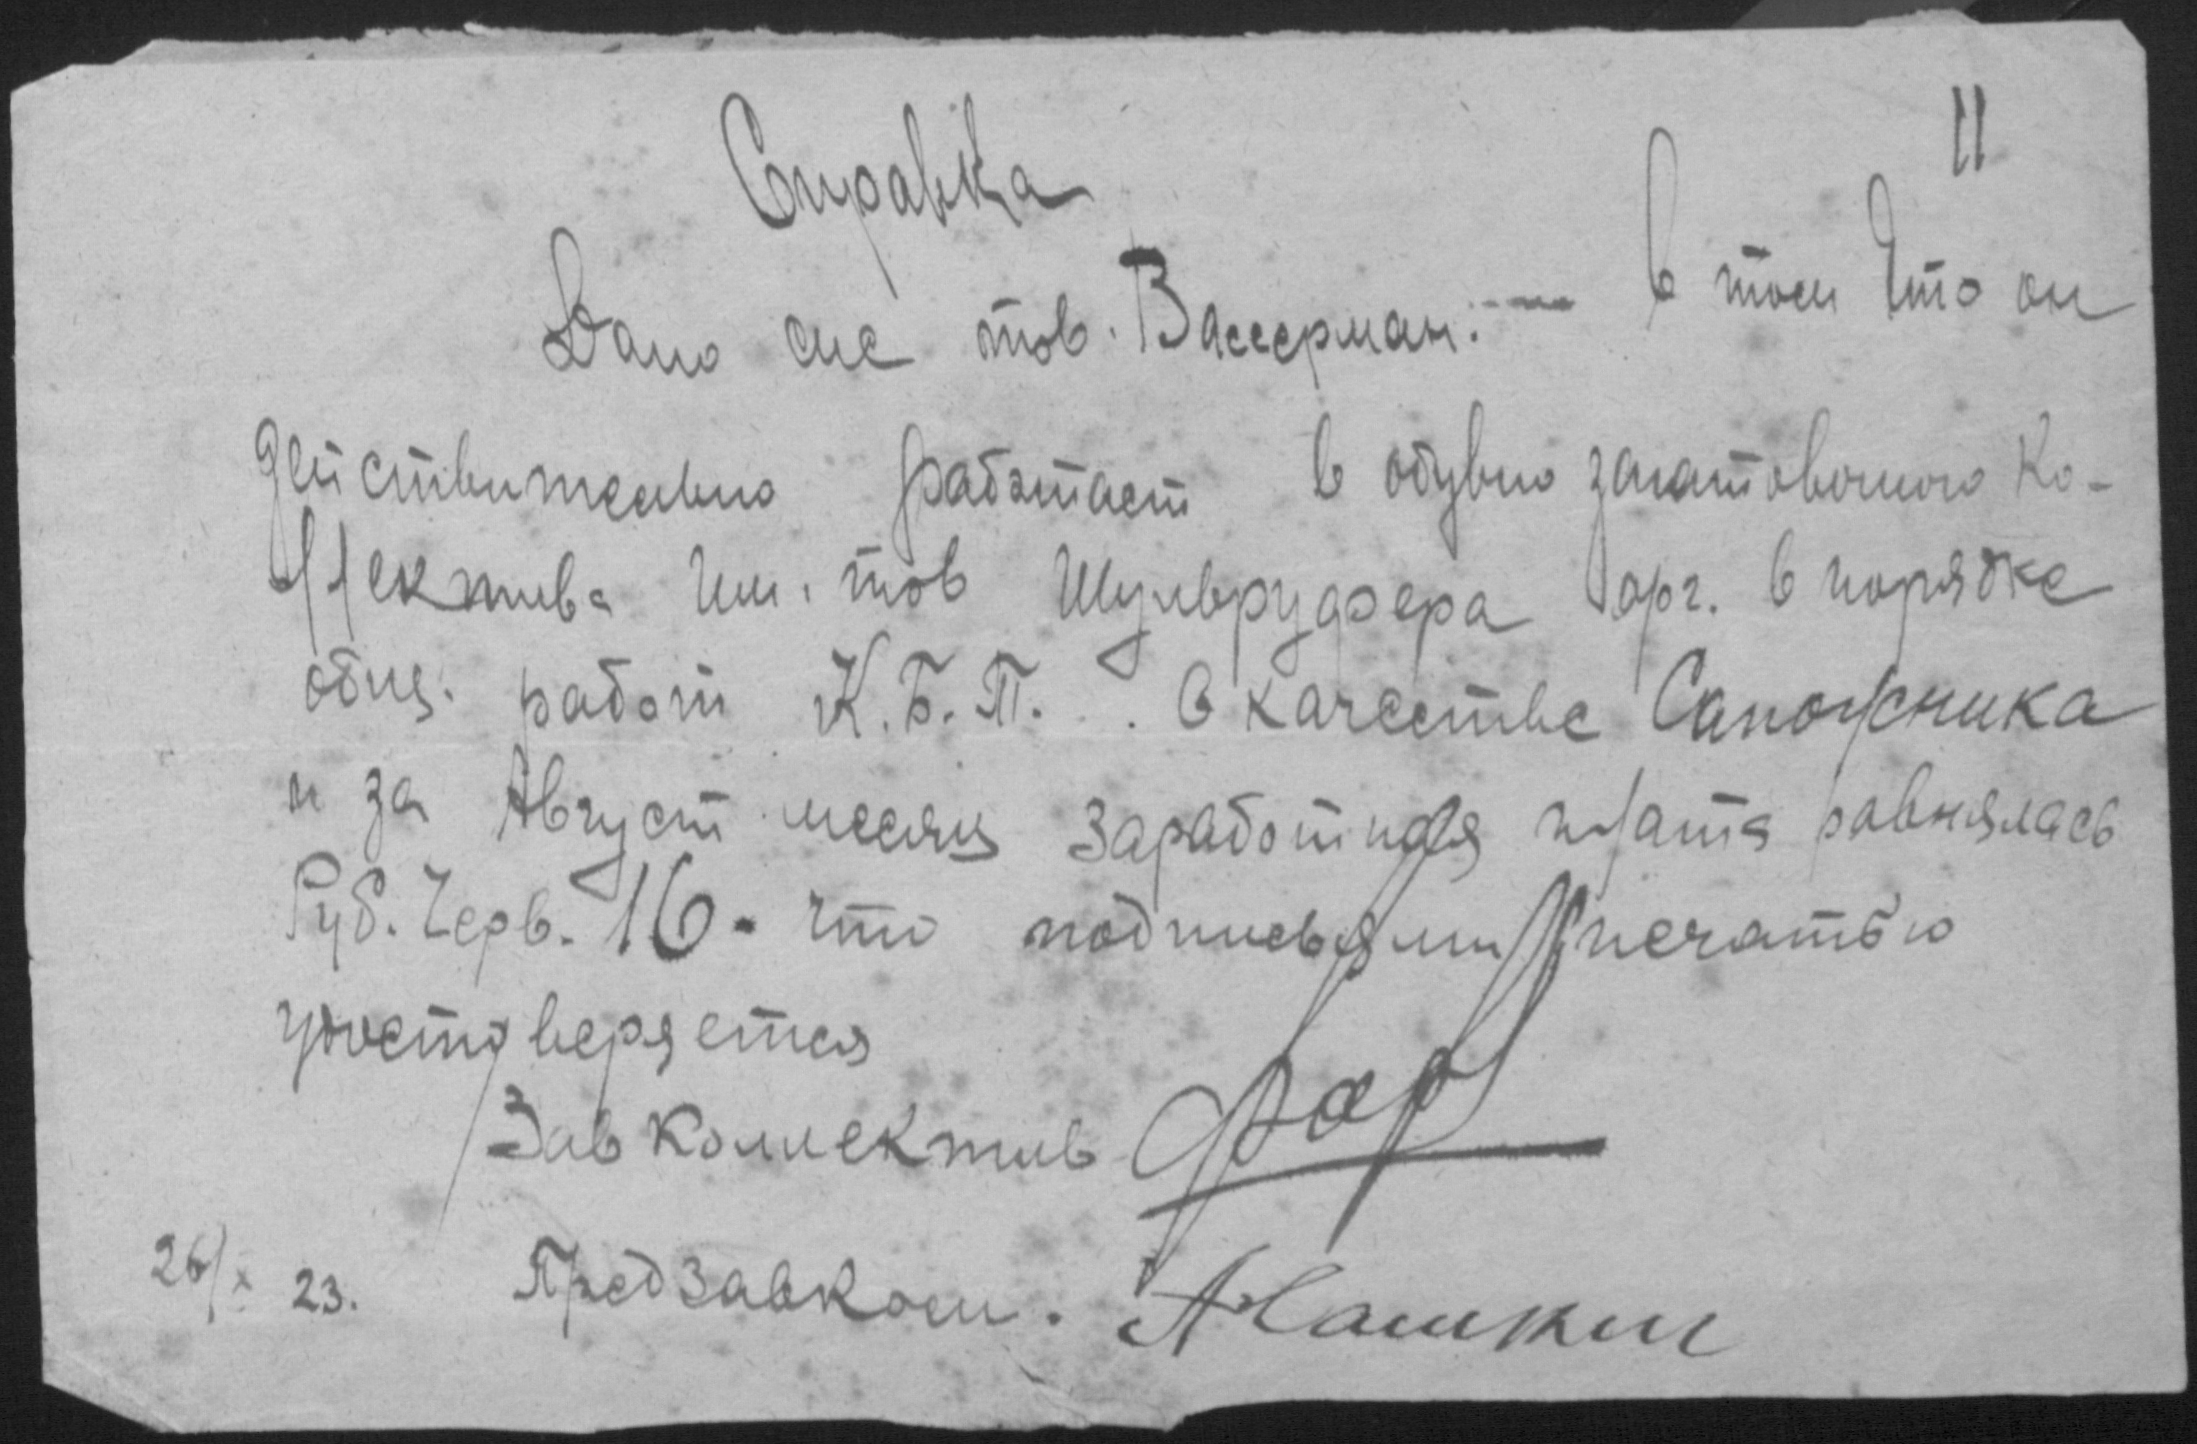 11
Справка
Дано сие тов. Вассерман. — в том что он
действительно работает в обувно заготовочного ко-
ллектива им. тов Шульруфера орг. в порядке
общ. работ К.Б.П. в качестве Сапожника
и за Август месяц заработная плата равнялась
Руб. Черв. 16. что подписьями печатью
удостоверяется
Зав коллектив
26/X 23. Предзавком.